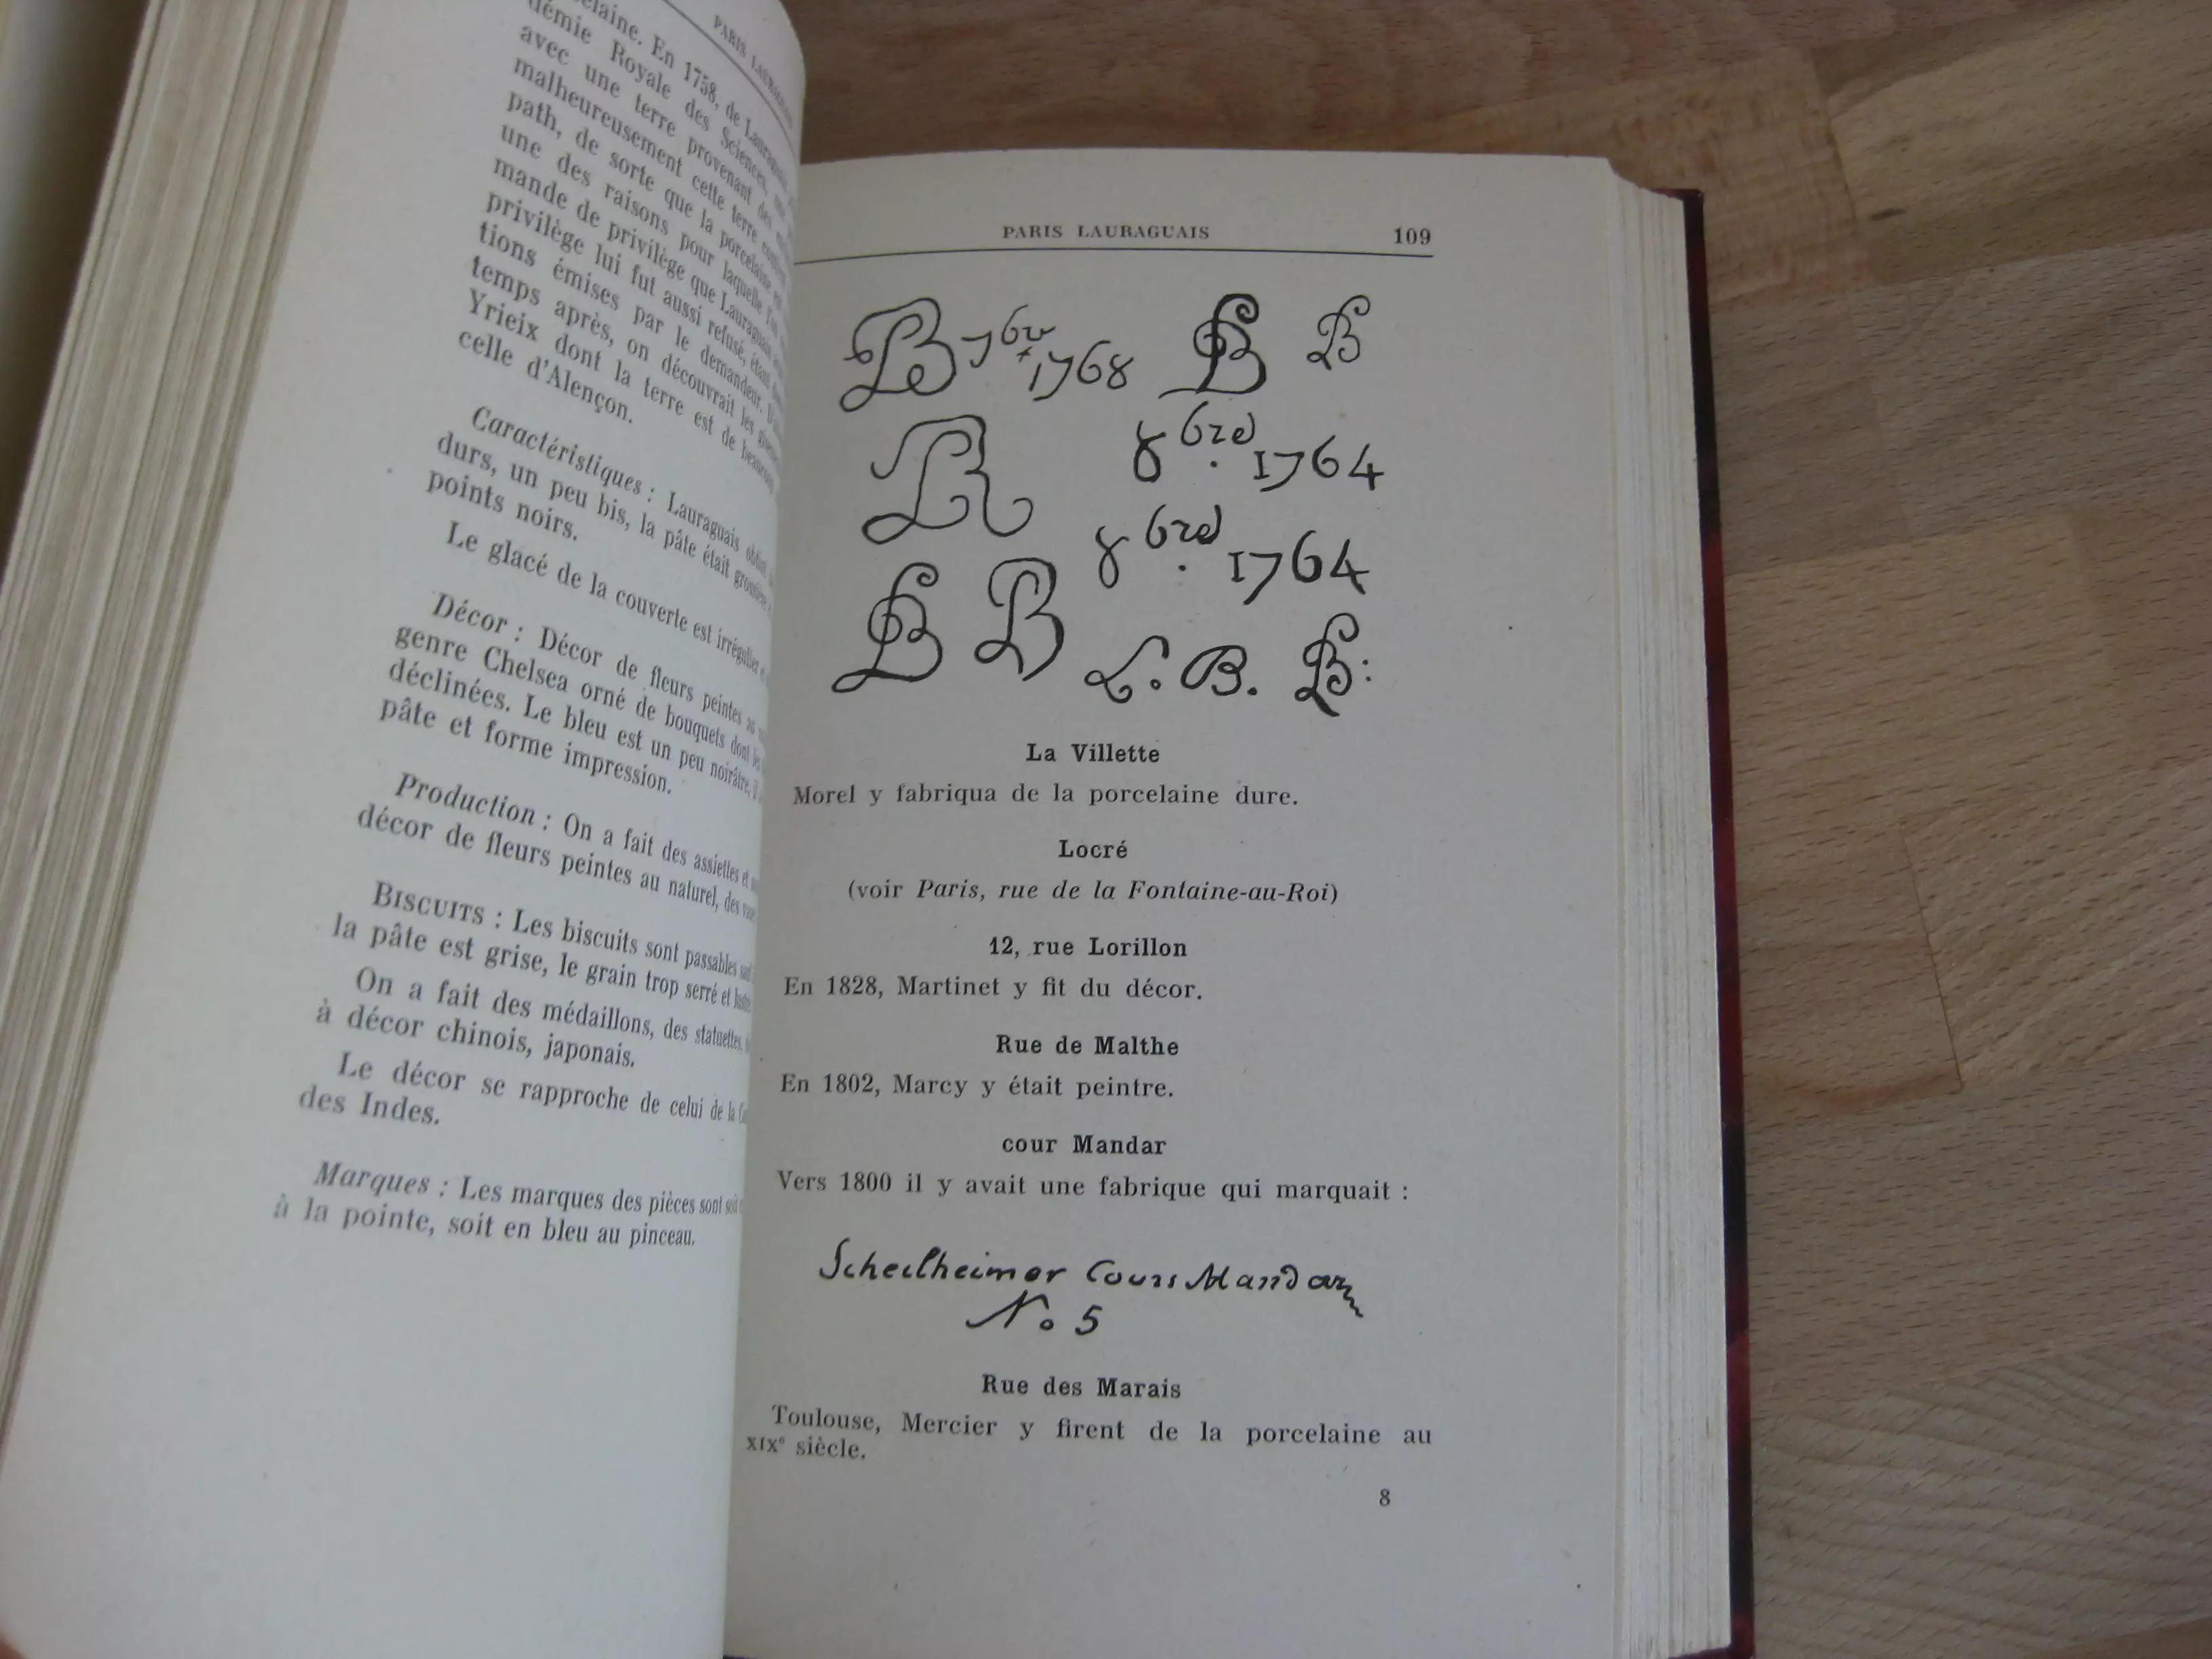 PARIS LAURAGUAIS
En 1758, de Lauraguais
démie Royale des Sciences,
avec une terre provenant des
malheureusement cette terre
path, de sorte que la porcelaine
une des raisons pour laquelle
mande de privilège que Lauraguais
privilège lui fut aussi refusé,
tions émises par le demandeur.
temps après, on découvrait les
Yrieix dont la terre est de
celle d'Alençon.
Caractéristiques : Lauraguais
durs, un peu bis, la pâte était
points noirs.
Le glacé de la couverte est irrégulier
Décor : Décor de fleurs peintes au
genre Chelsea orné de bouquets dont
déclinées. Le bleu est un peu noirâtre,
pâte et forme impression.
Production : On a fait des assiettes et
décor de fleurs peintes au naturel, des
BISCUITS : Les biscuits sont passables
la pâte est grise, le grain trop serré et
On a fait des médaillons, des statuettes,
à décor chinois, japonais.
Le décor se rapproche de celui de la
des Indes.
Marques : Les marques des pièces sont soit
à la pointe, soit en bleu au pinceau.
PARIS LAURAGUAIS 109
1768
8bre 1764
8bre 1764
L. B.
La Villette
Morel y fabriqua de la porcelaine dure.
Locré
(voir Paris, rue de la Fontaine-au-Roi)
12, rue Lorillon
En 1828, Martinet y fit du décor.
Rue de Malthe
En 1802, Marcy y était peintre.
cour Mandar
Vers 1800 il y avait une fabrique qui marquait :
Scheilheimer Cours Mandar
No 5
Rue des Marais
Toulouse, Mercier y firent de la porcelaine au
XIXe siècle.
8